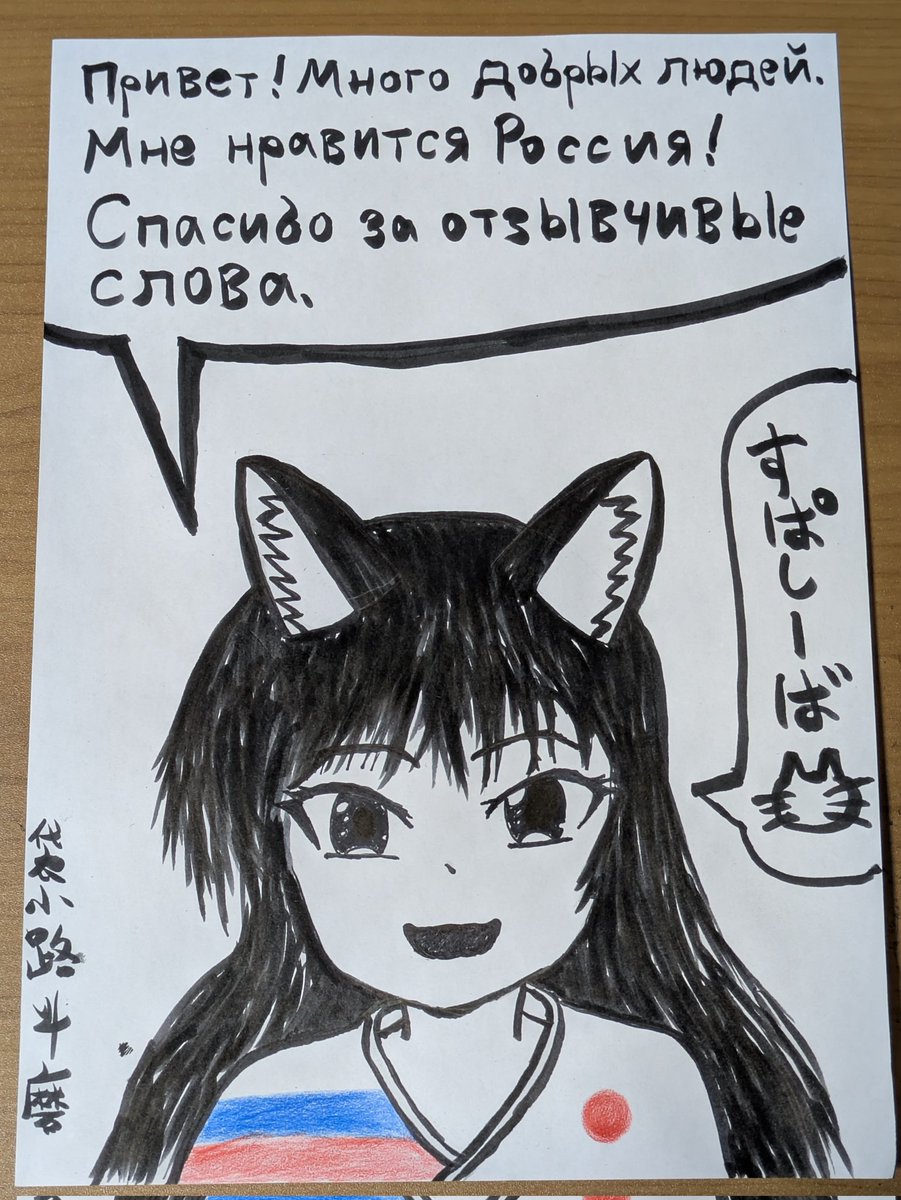 Привет! Много добрых людей.
Мне нравится Россия!
Спасибо за отзывчивые
слова.
すぱしーば
袋小路斗磨